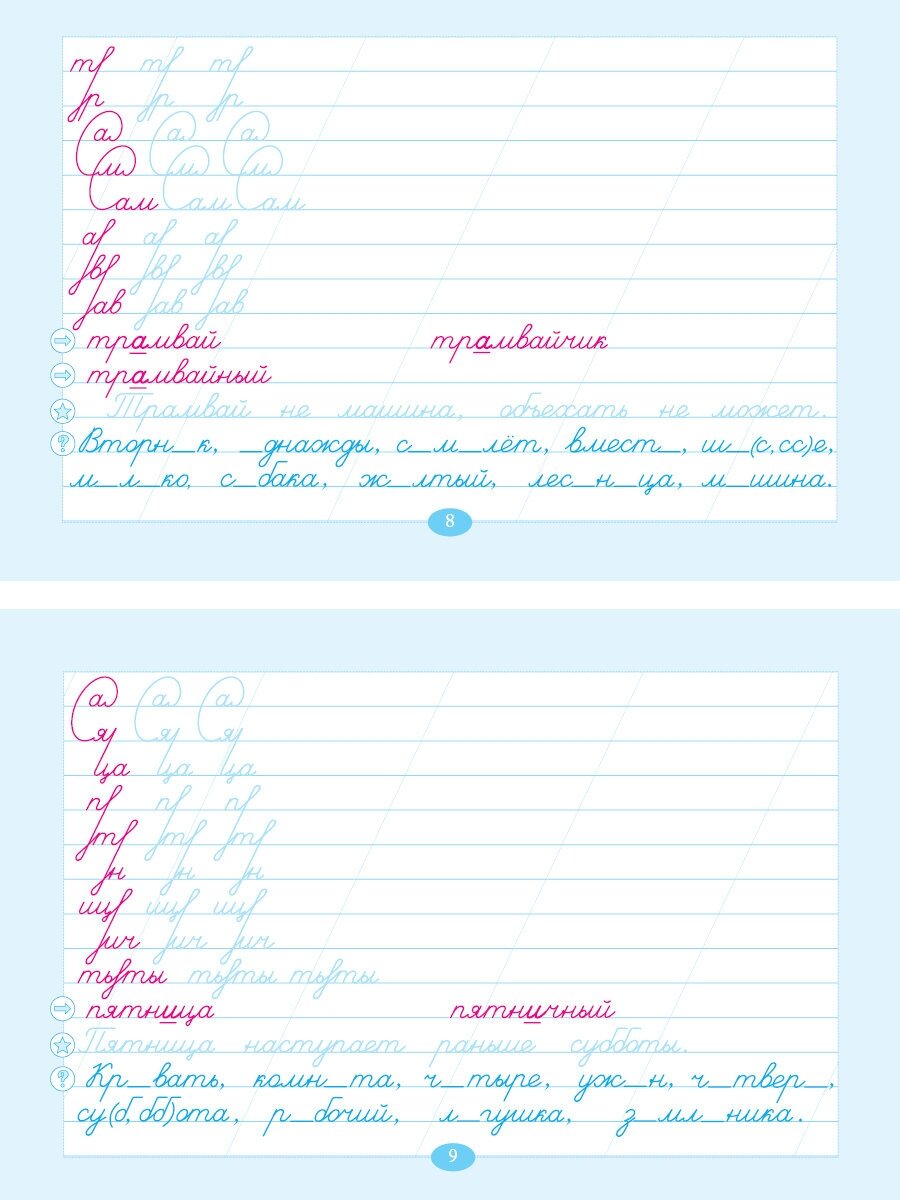 т т т
р р р
а а а
ми ми ми
ам Сам Сам
а а а
в в в
ав ав ав
трамвай трамвайчик
трамвайный
Трамвай не машина, объехать не может.
? Вторн_к, _днажды, с_м_лёт, вмест_, ш_(с,сс)е,
м_л_ко, с_бака, ж_лтый, лес_н_ца, м_шина.
8
а а а
я я я
ца ца ца
п п п
т т т
н н н
ич ич ич
ты ты ты
пятница пятничный
Пятница наступает раньше субботы.
? Кр_вать, комн_та, ч_тыре, уж_н, ч_твер_,
су(б, бб)ота, р_бочий, л_гушка, з_мл_ника.
9